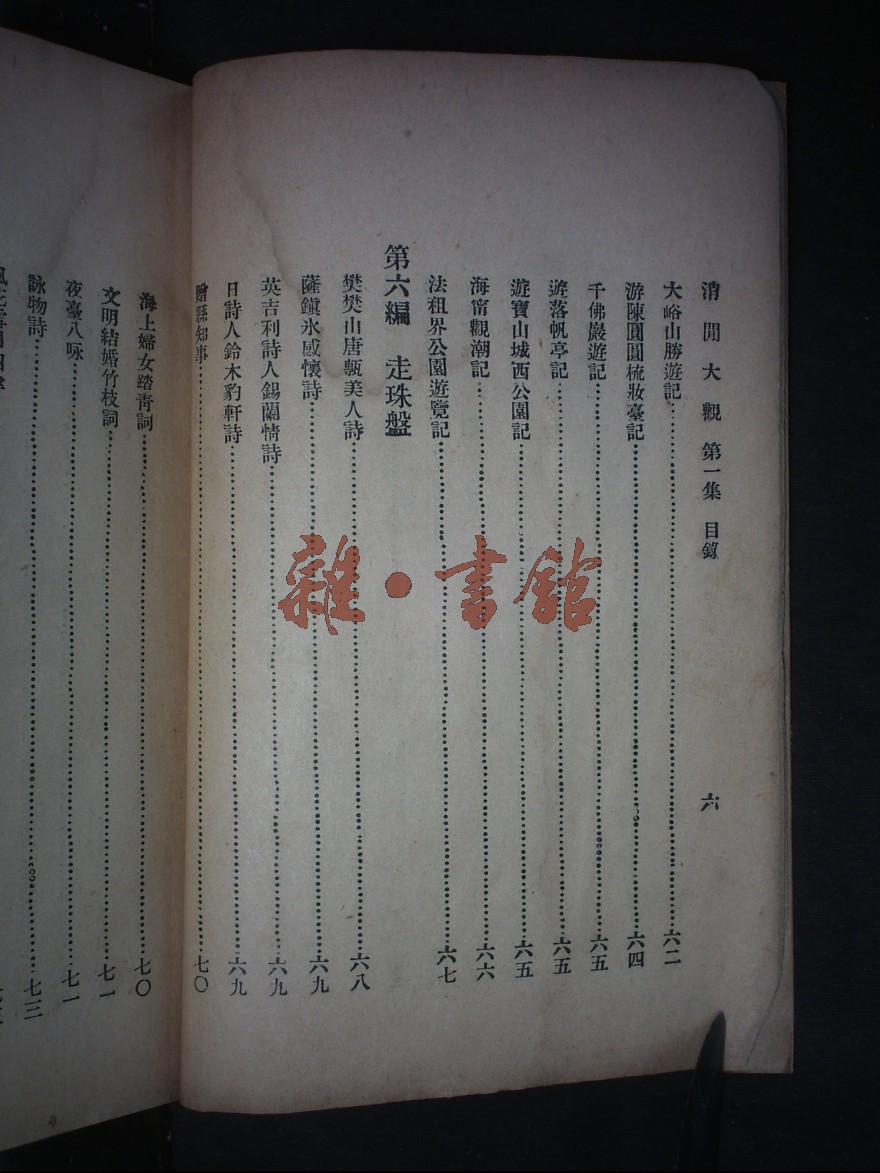 消閒大觀 第一集 目錄 六
大峪山勝遊記……六二
游陳圓圓梳妝臺記……六四
千佛巖遊記……六五
遊落帆亭記……六五
遊寶山城西公園記……六五
海甯觀潮記……六六
法租界公園遊覽記……六七
第六編 走珠盤
樊樊山唐甎美人詩……六八
薩鎭氷感懷詩……六九
英吉利詩人錫蘭情詩……六九
日詩人鈴木豹軒詩……六九
贈縣知事……七〇
海上婦女踏靑詞……七〇
文明結婚竹枝詞……七一
夜臺八咏……七一
詠物詩……七三
雜·書館